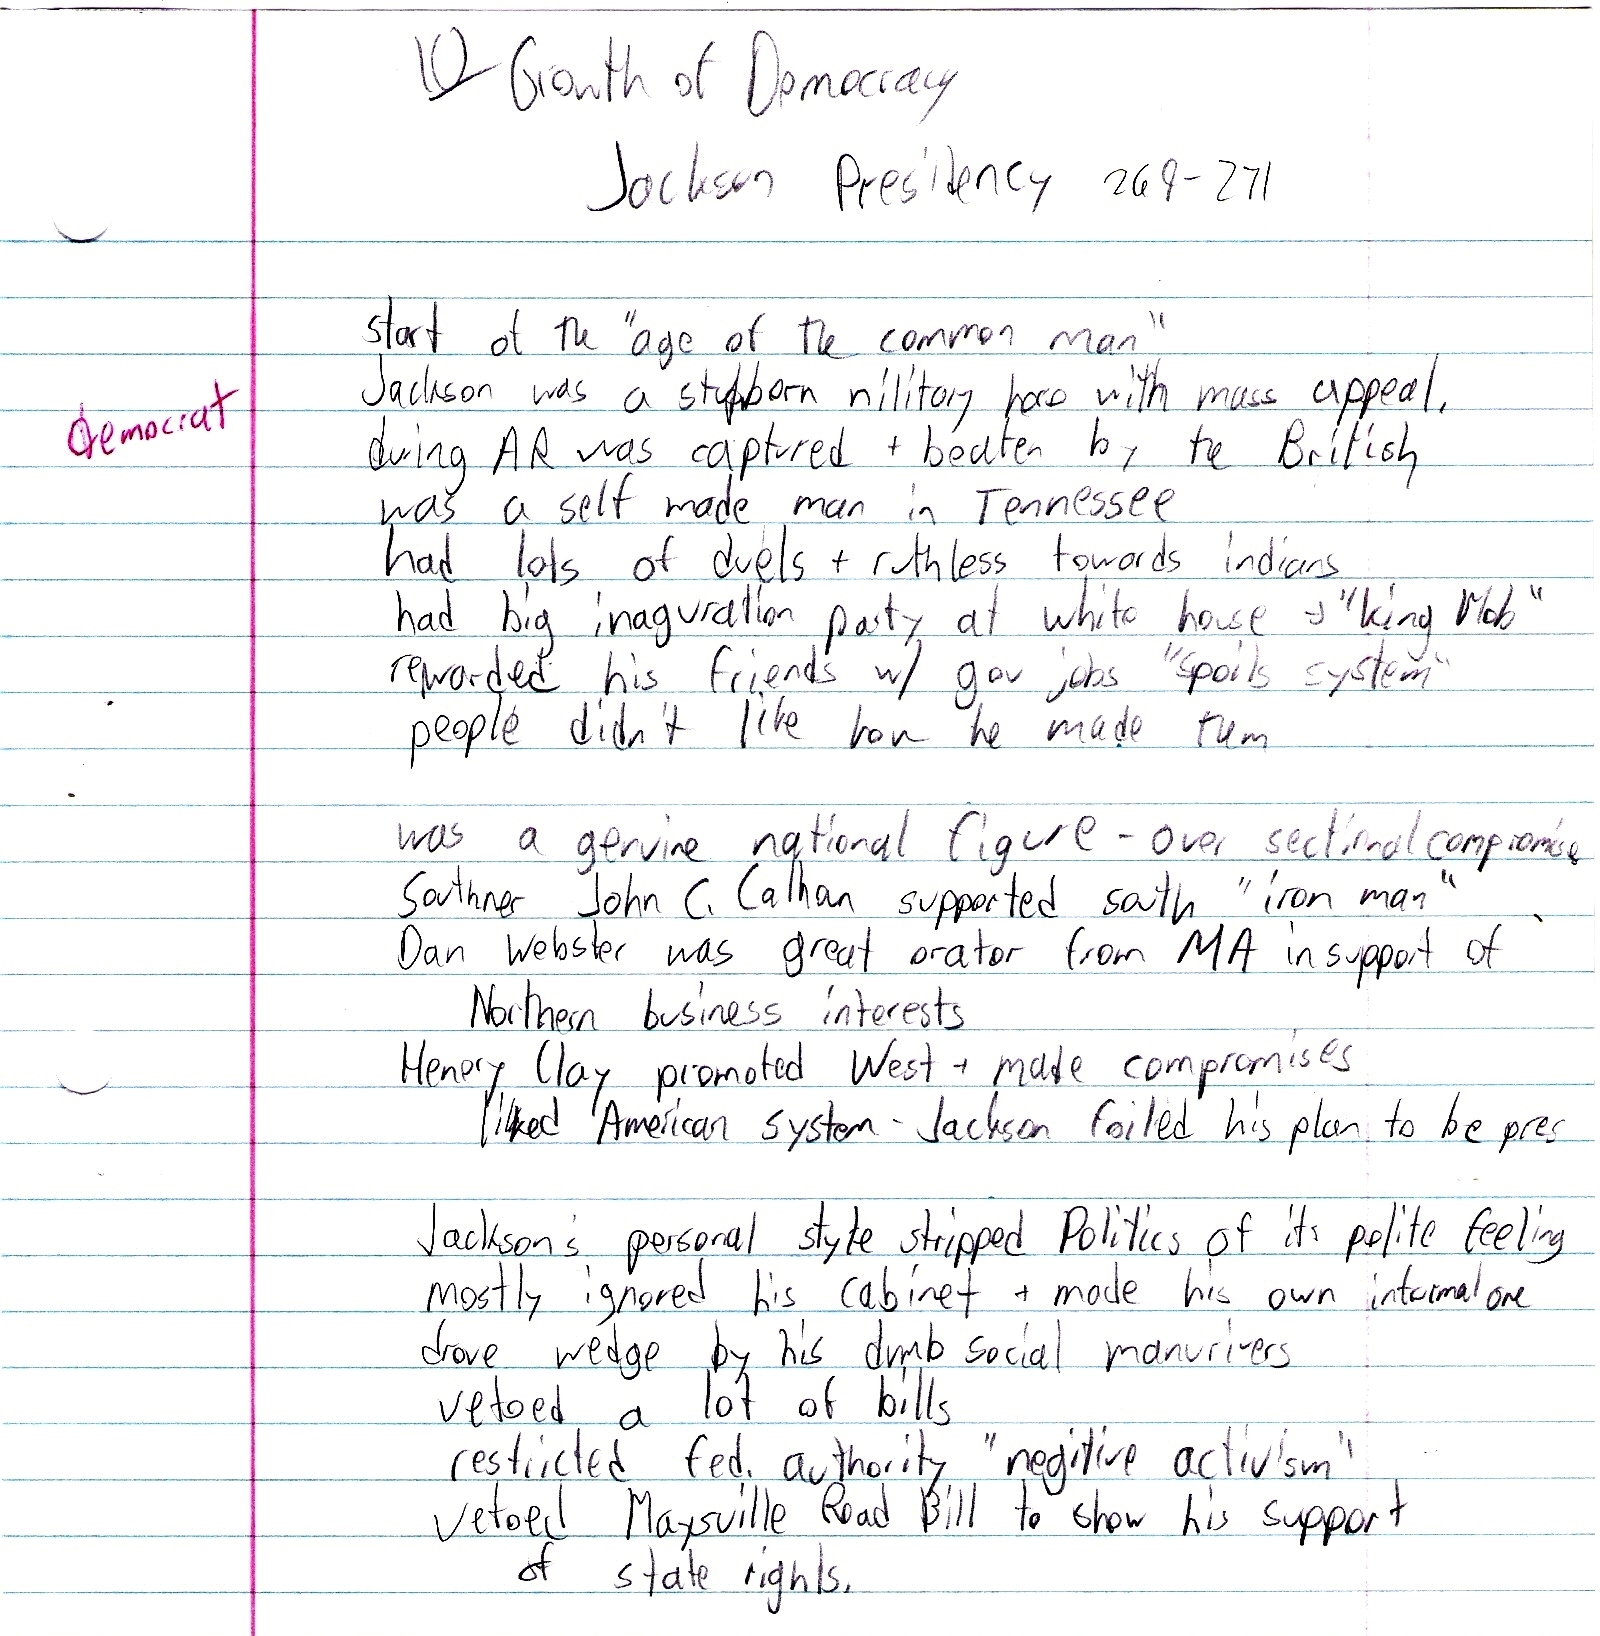 10 Growth of Democracy
Jackson Presidency 269-271
start of the "age of the common man"
democrat
Jackson was a stubborn military hero with mass appeal.
during AR was captured + beaten by the British
was a self made man in Tennessee
had lots of duels + ruthless towards indians
had big inaguration party at white house → "king Mob"
rewarded his friends w/ gov jobs "spoils system"
people didn't like how he made them
was a genuine national figure - over sectional compromise
Southner John C. Calhan supported south "iron man"
Dan Webster was great orator from MA in support of
Northern business interests
Henery Clay promoted West + made compromises
liked American system - Jackson foiled his plan to be pres
Jackson's personal style stripped Politics of its polite feeling
mostly ignored his cabinet + made his own informal one
drove wedge by his dumb social
vetoed a lot of bills
restricted fed. authority "negitive activism"
vetoed Maysville Road Bill to show his support
of state rights.